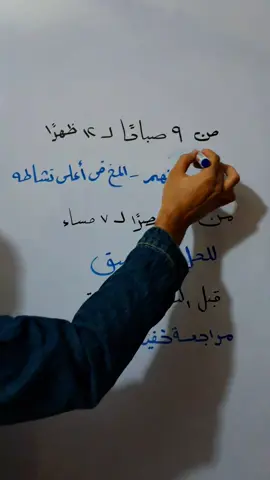 من ٩ صباحًا لـ ١٢ ظهرًا
فهم - المخ في أعلى نشاطه
من صرًا لـ ٧ مساء
للحل يق
قبل
مراجعة خفيف